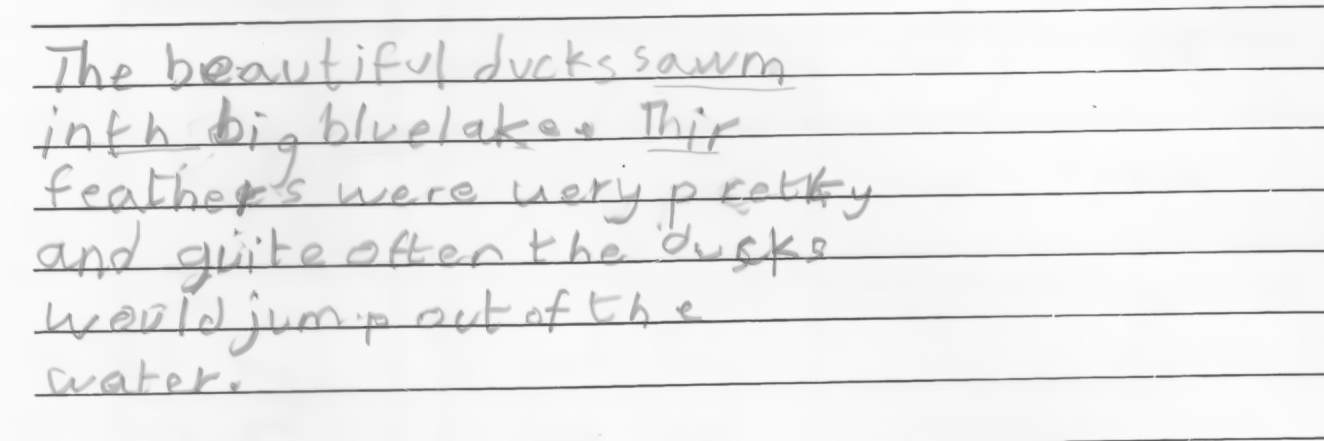 The beautiful ducks sawm
inth big bluelake. Thir
feathers were very pretty
and quite often the ducks
would jump out of the
water.